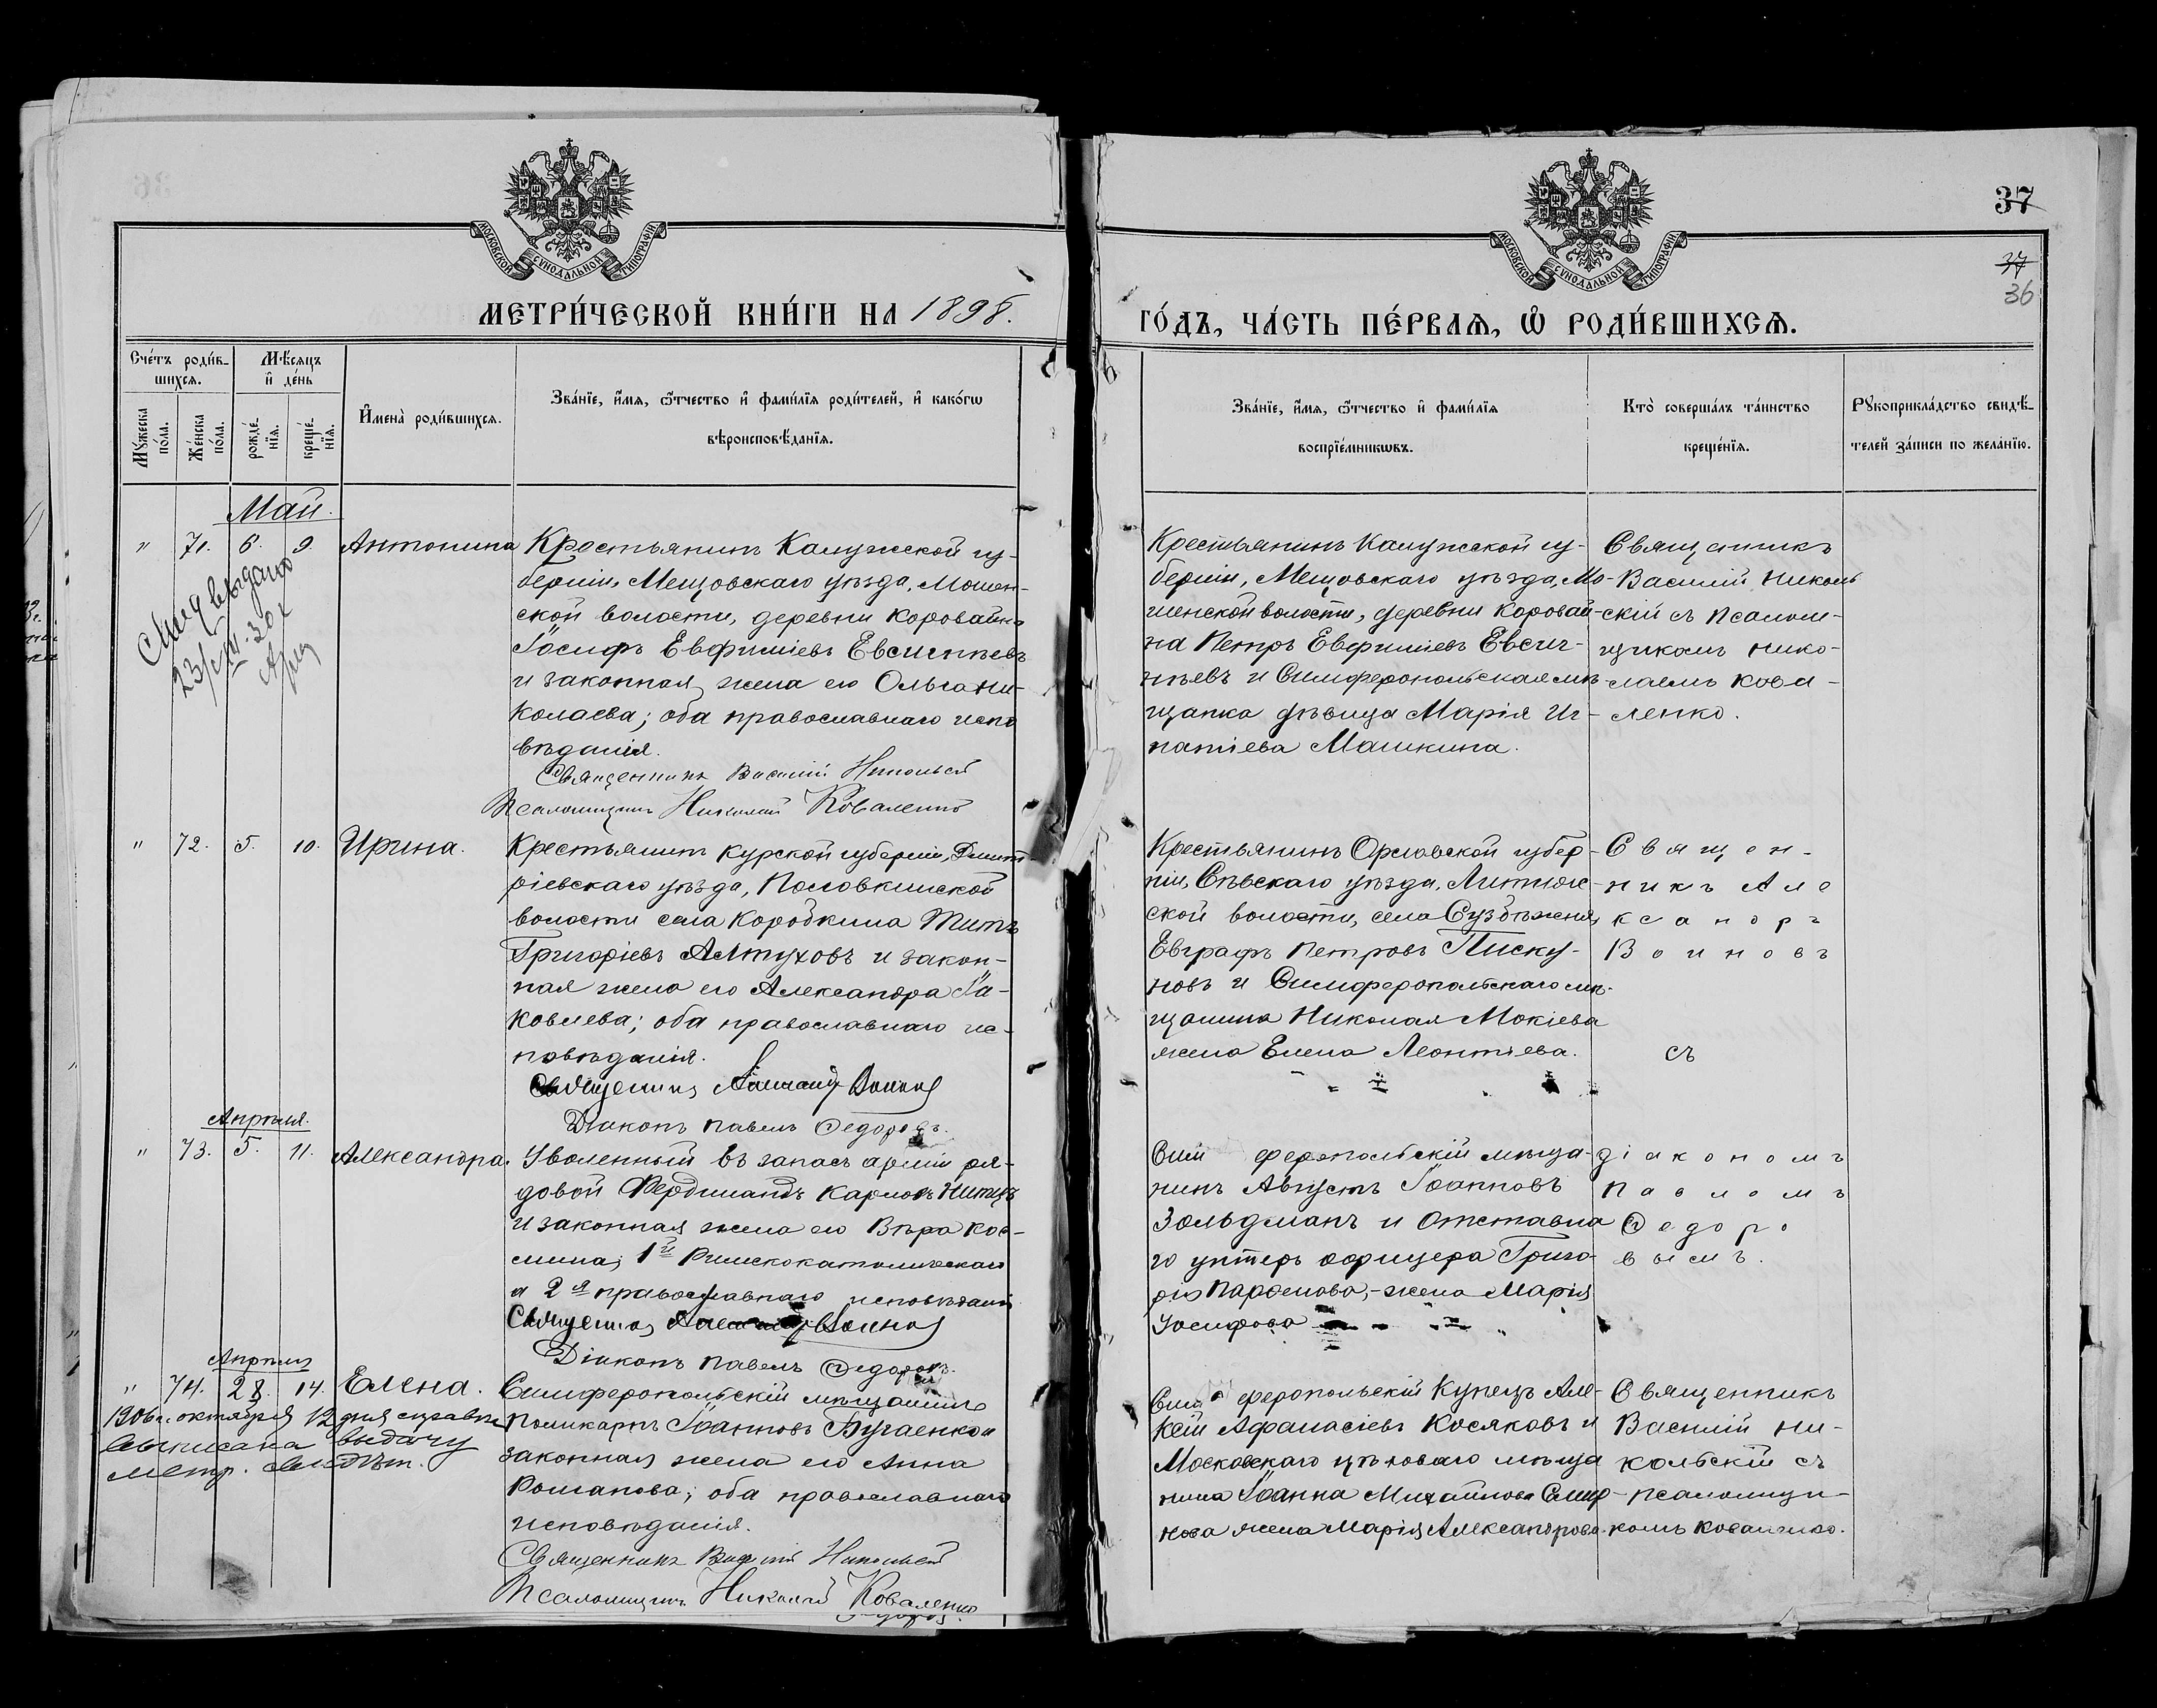 37
37
36
МОСКОВСКОЙ СѴНОДАЛЬНОЙ ТИПОГРАФІИ
МЕТРИ́ЧЕСКОЙ КНИ́ГИ НА 1898.
Сче́тъ роди́в-
шихсѧ.
Мѣ́сѧцъ
и҆ де́нь
Мꙋ́жеска
по́ла.
Же́нска
по́ла.
рожде́-
нїѧ.
креще́-
нїѧ.
И҆мена̀ роди́вшихсѧ.
Зва́нїе, и҆́мѧ, ѻ҆́тчество и҆ фами́лїѧ роди́телей, и҆ како́гѡ
вѣроисповѣ́данїѧ.
Май.
" 71. 6. 9. Антонина
Крестьянинъ Калужской гу-
берніи, Мещовскаго уѣзда, Мошен-
ской волости, деревни Коровайна
Іосифъ Евфиміевъ Евсигнѣевъ
и законная жена его Ольга Ни-
колаева; оба православнаго испо
вѣданія.
Священникъ Василій Никольскій
Псаломщикъ Николай Коваленко
" 72. 5. 10. Ирина.
Крестьянинъ Курской губерніи, Дмит
ріевскаго уѣзда,
волости села Коробкина Титъ
Григоріевъ Алтуховъ и закон-
ная жена его Александра Іа-
ковлева; оба православнаго ис-
повѣданія.
Священникъ Александръ Воиновъ
Діаконъ Павелъ Ѳедоровъ.
Апрѣля.
" 73. 5. 11. Александра.
Уволенный въ запасъ арміи ря-
довой Фердинандъ Карловъ
и законная жена его Вѣра Кос-
мина, 1й Римскокатолическаго
а 2я православнаго исповѣданій
Священникъ Александръ Воиновъ
Діаконъ Павелъ Ѳедоровъ.
Апрѣля
" 74. 28. 14. Елена.
1906 г. октября 12 дня справка
выписана выдачу
метр. свидѣт.
Симферопольскій мѣщанинъ
Поликарпъ Іоанновъ Бугаенко и
законная жена его Анна
Романова; оба православнаго
исповѣданія.
Священникъ Василій Никольскій
Псаломщикъ Николай Коваленко
МОСКОВСКОЙ СѴНОДАЛЬНОЙ ТИПОГРАФІИ
ГО́ДЪ, ЧА́СТЬ ПЕ́РВАѦ, Ѡ҆ РОДИ́ВШИХСѦ.
Зва́нїе, и҆́мѧ, ѻ҆́тчество и҆ фами́лїѧ
воспрїе́мникѡвъ.
Кто̀ соверша́лъ та́инство
креще́нїѧ.
Рꙋкоприкла́дство свидѣ́-
телей за́писи по жела́нїю.
Крестьянинъ Калужской гу-
берніи, Мещовскаго уѣзда, Мо-
шенской волости, деревни Коровай-
на Петръ Евфиміевъ Евсиг-
нѣевъ и Симферопольская мѣ-
щанка дѣвица Марія Иг-
натіева Машкина.
Священникъ
Василій Николь
скій съ псалом-
щикомъ Нико-
лаемъ Кова-
ленко.
Крестьянинъ Орловской губер-
ніи, Сѣвскаго уѣзда,
ской волости, села
Евграфъ Петровъ Писку-
новъ и Симферопольскаго мѣ-
щанина Николая Мокіева
жена Елена Леонтіева.
Священ-
никъ Але
ксандръ
Воиновъ
съ
Сим феропольскій мѣща-
нинъ Августъ Іоанновъ
Зольдманъ и Отставна
го унтеръ офицера Григо-
рія Парѳенова,-жена Марія
Іосифова
діакономъ
Павломъ
Ѳедоро
вымъ.
Сим феропольскій Купецъ Але-
ксій Аѳанасіевъ Косяковъ и
Московскаго цѣховаго мѣща
нина Іоанна Михайлова Смир-
нова жена Марія Александрова.
Священникъ
Василій Ни-
кольскій съ
псаломщи-
комъ Коваленко.